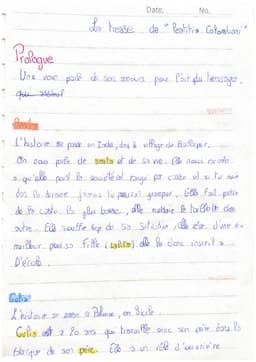 Date. No.
La tresse de "Laetitia Colombani"
Prologue
Une voix parle de ses pour
que
Smita
L'histoire se passe en Inde, dans le village de Badlapur.
On nous parle de smita et de sa vie. Elle nous raconte
qu'elle société et rangé par caste et si tu
dans la jamais tu pourrais grimper. Elle fait partie
de la caste la plus basse, elle nettoie la toilette des
autre. Elle souffre trop de sa situation, elle d'une vie
meilleur pour sa fille (Lalita). elle l'a donc inscrit a
l'école.
Giulia
L'histoire se passe a Palerme, en Sicile.
Giulia est a 20 ans que travaille avec son père dans la
fabrique de son père. Elle a un rôle d'ouvrière